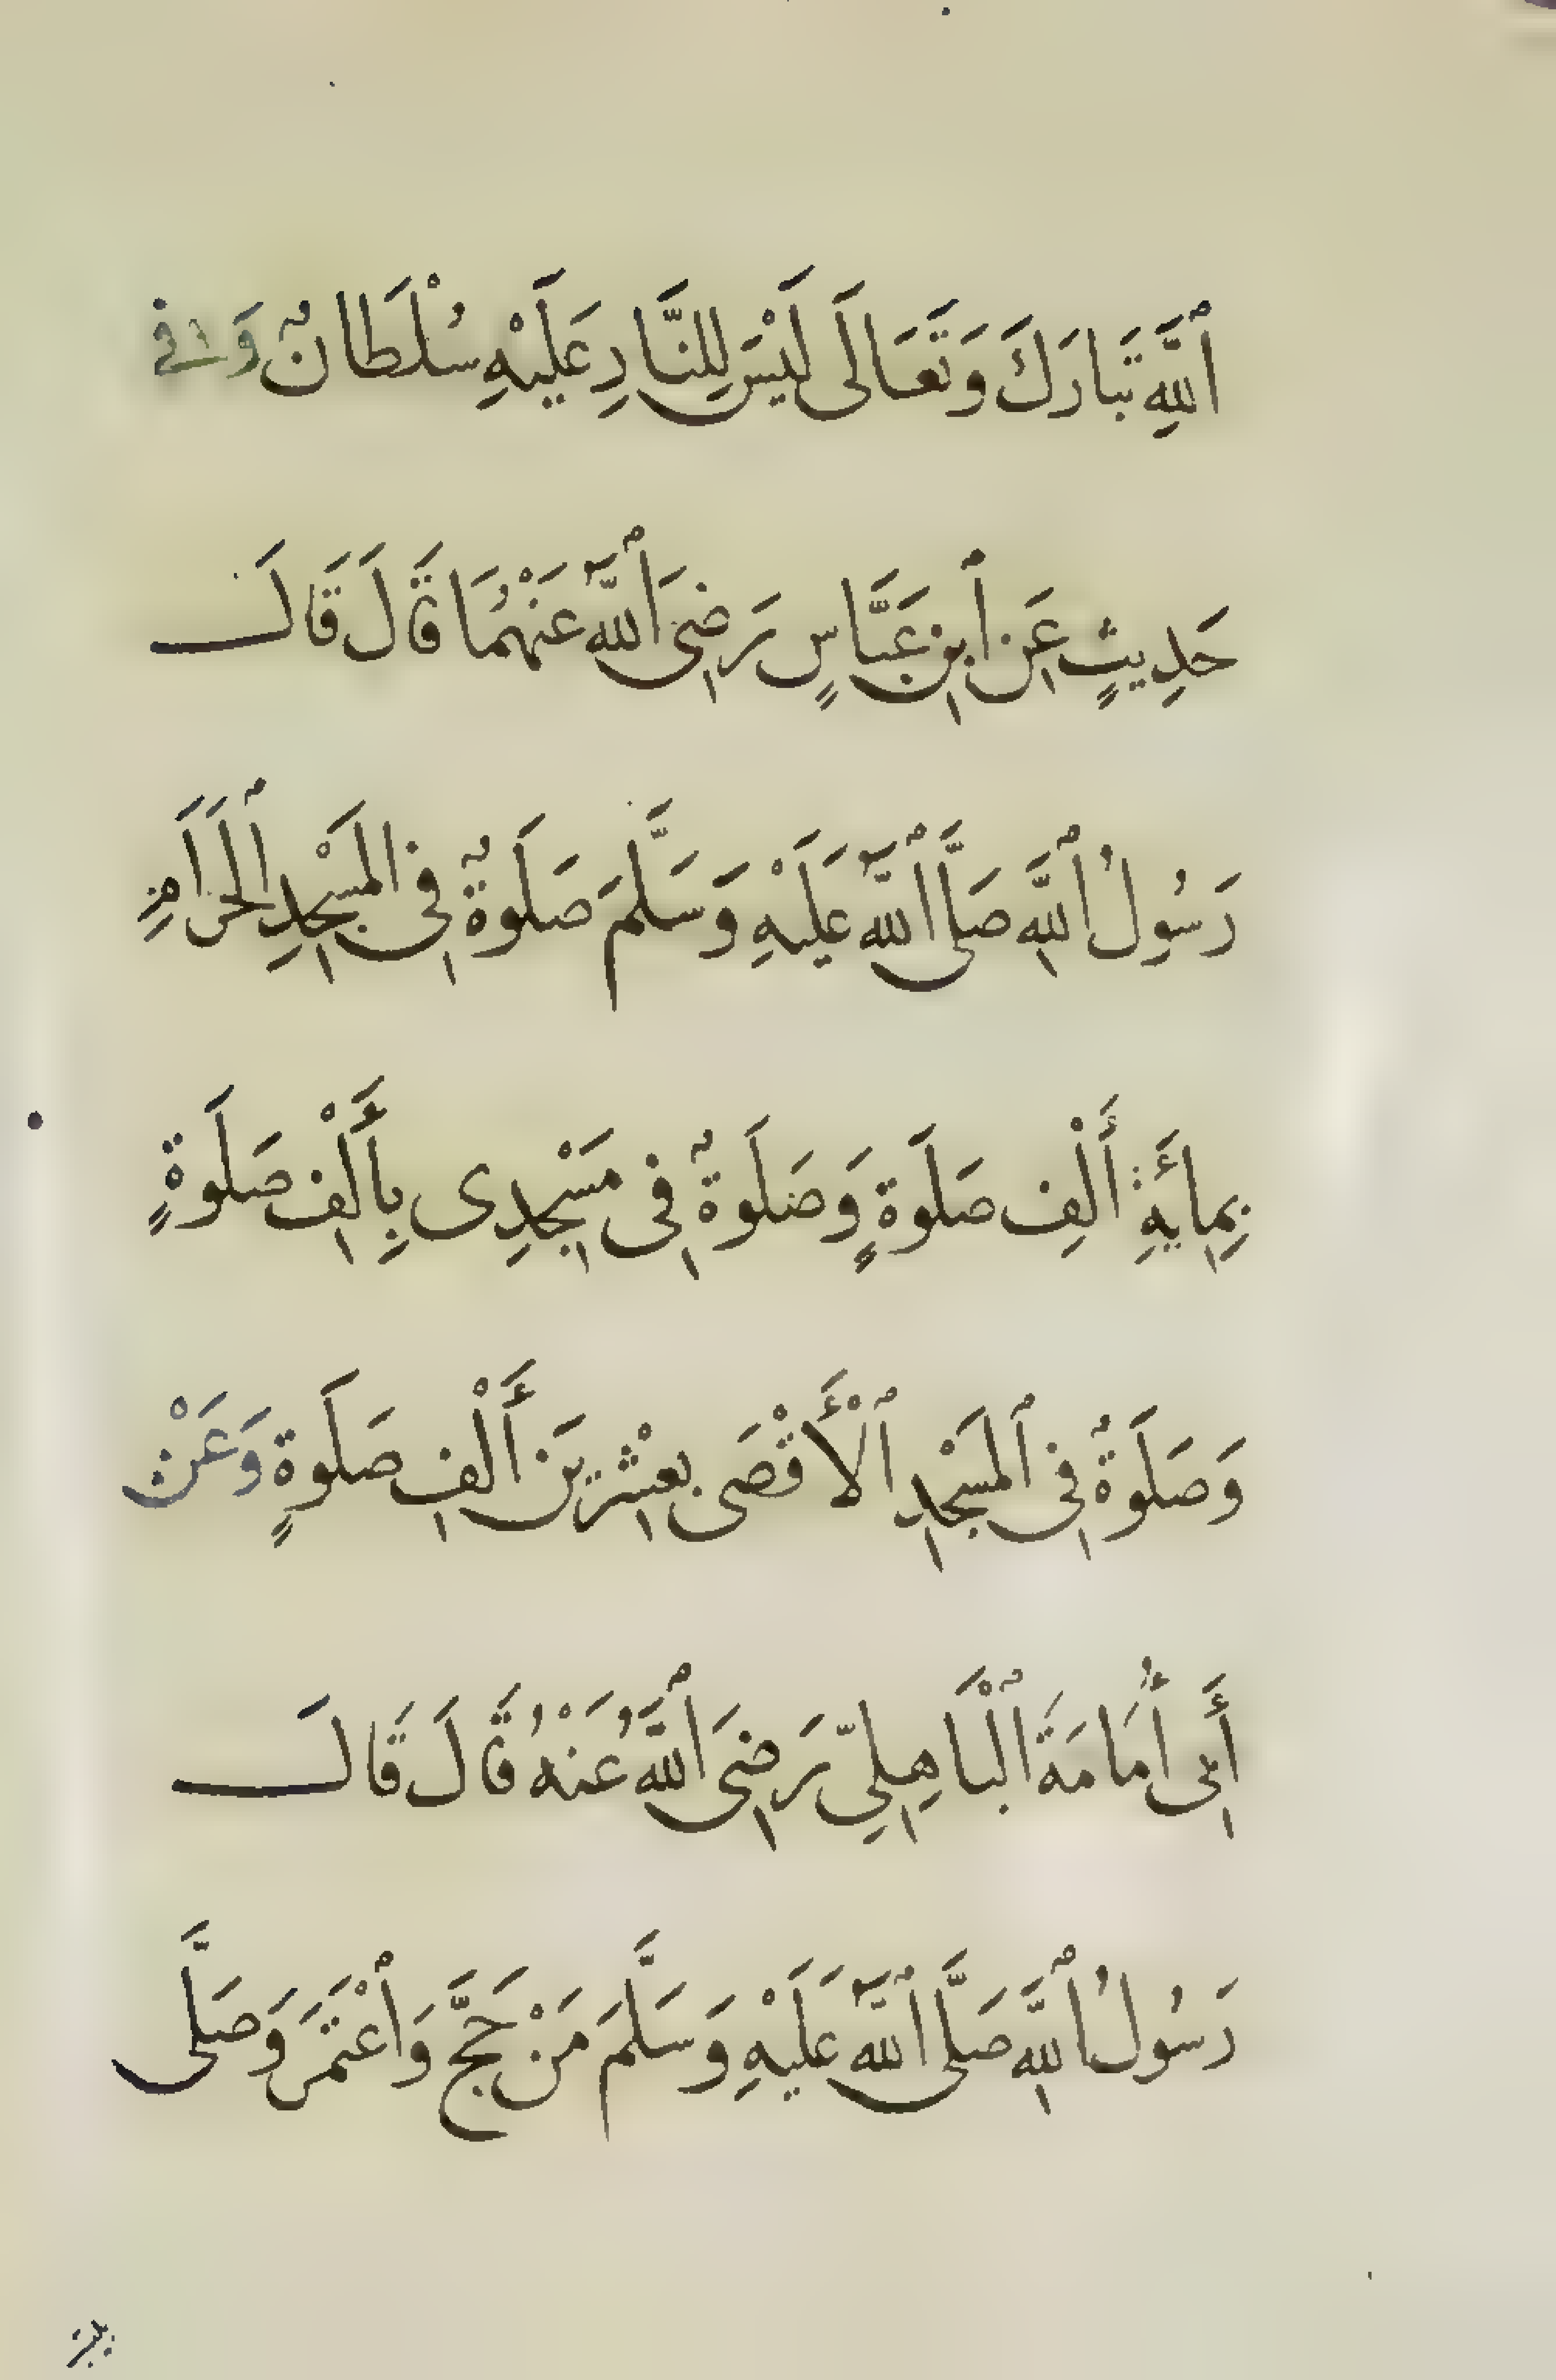 ٱللَّهِ تَبَارَكَ وَتَعَالَى لَيْسَ لِلنَّارِ عَلَيْهِ سُلْطَانٌ وَفِي
حَدِيثٍ عَنِ ٱبْنِ عَبَّاسٍ رَضِيَ ٱللَّهُ عَنْهُمَا قَالَ قَالَ
رَسُولُ ٱللَّهِ صَلَّى ٱللَّهُ عَلَيْهِ وَسَلَّمَ صَلَوةٌ فِي الْمَسْجِدِ ٱلْحَرَامِ
بِمِائَةِ أَلْفِ صَلَوةٍ وَصَلَوةٌ فِي مَسْجِدِى بِأَلْفِ صَلَوةٍ
وَصَلَوةٌ فِي ٱلْمَسْجِدِ ٱلْأَقْصَى بِعِشْرِينَ أَلْفِ صَلَوةٍ وَعَنْ
أَبِى أُمَامَةَ ٱلْبَاهِلِيِّ رَضِيَ ٱللَّهُ عَنْهُ قَالَ قَالَ
رَسُولُ ٱللَّهِ صَلَّى ٱللَّهُ عَلَيْهِ وَسَلَّمَ مَنْ حَجَّ وَٱعْتَمَرَ وَصَلَّى